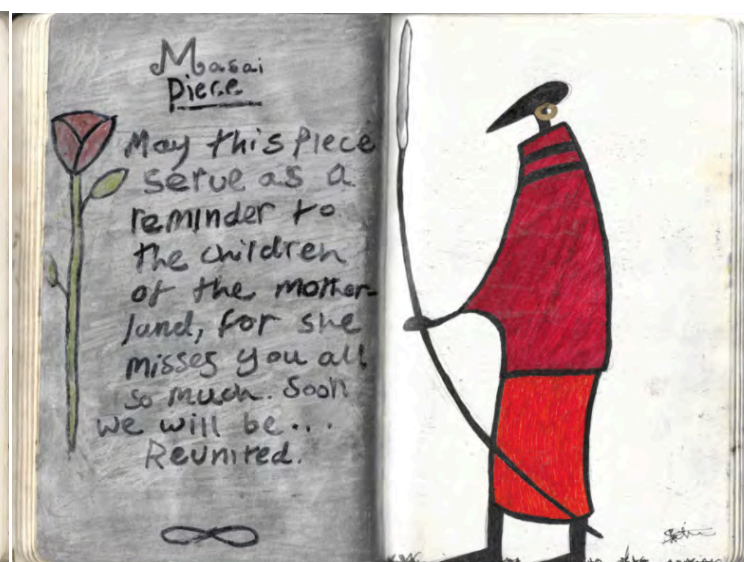 Masai
Piece
May this piece
serve as a
reminder to
the children
of the mother-
land, for she
misses you all
so much. Soon
we will be...
Reunited.